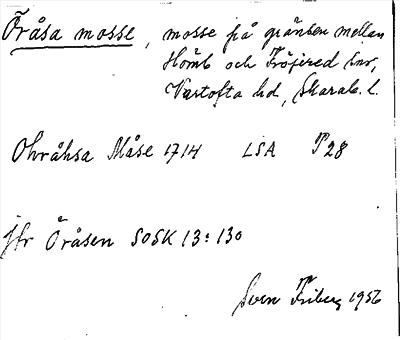 Öråsa mosse, mosse på gränsen mellan
Hömb och Fröjered snr,
Vartofta hd, Skarab. l.
Ohråhsa Måse 1714 LSA P28
jfr Öråsen SOSK 13:130
Sven Friberg 1956